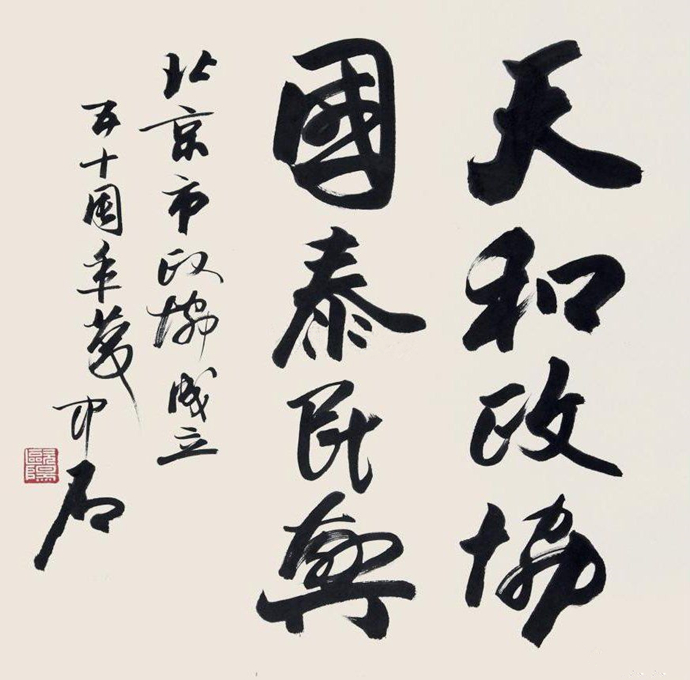 天和政協
國泰民興
北京市政協成立
五十周年荣
中石
歐陽